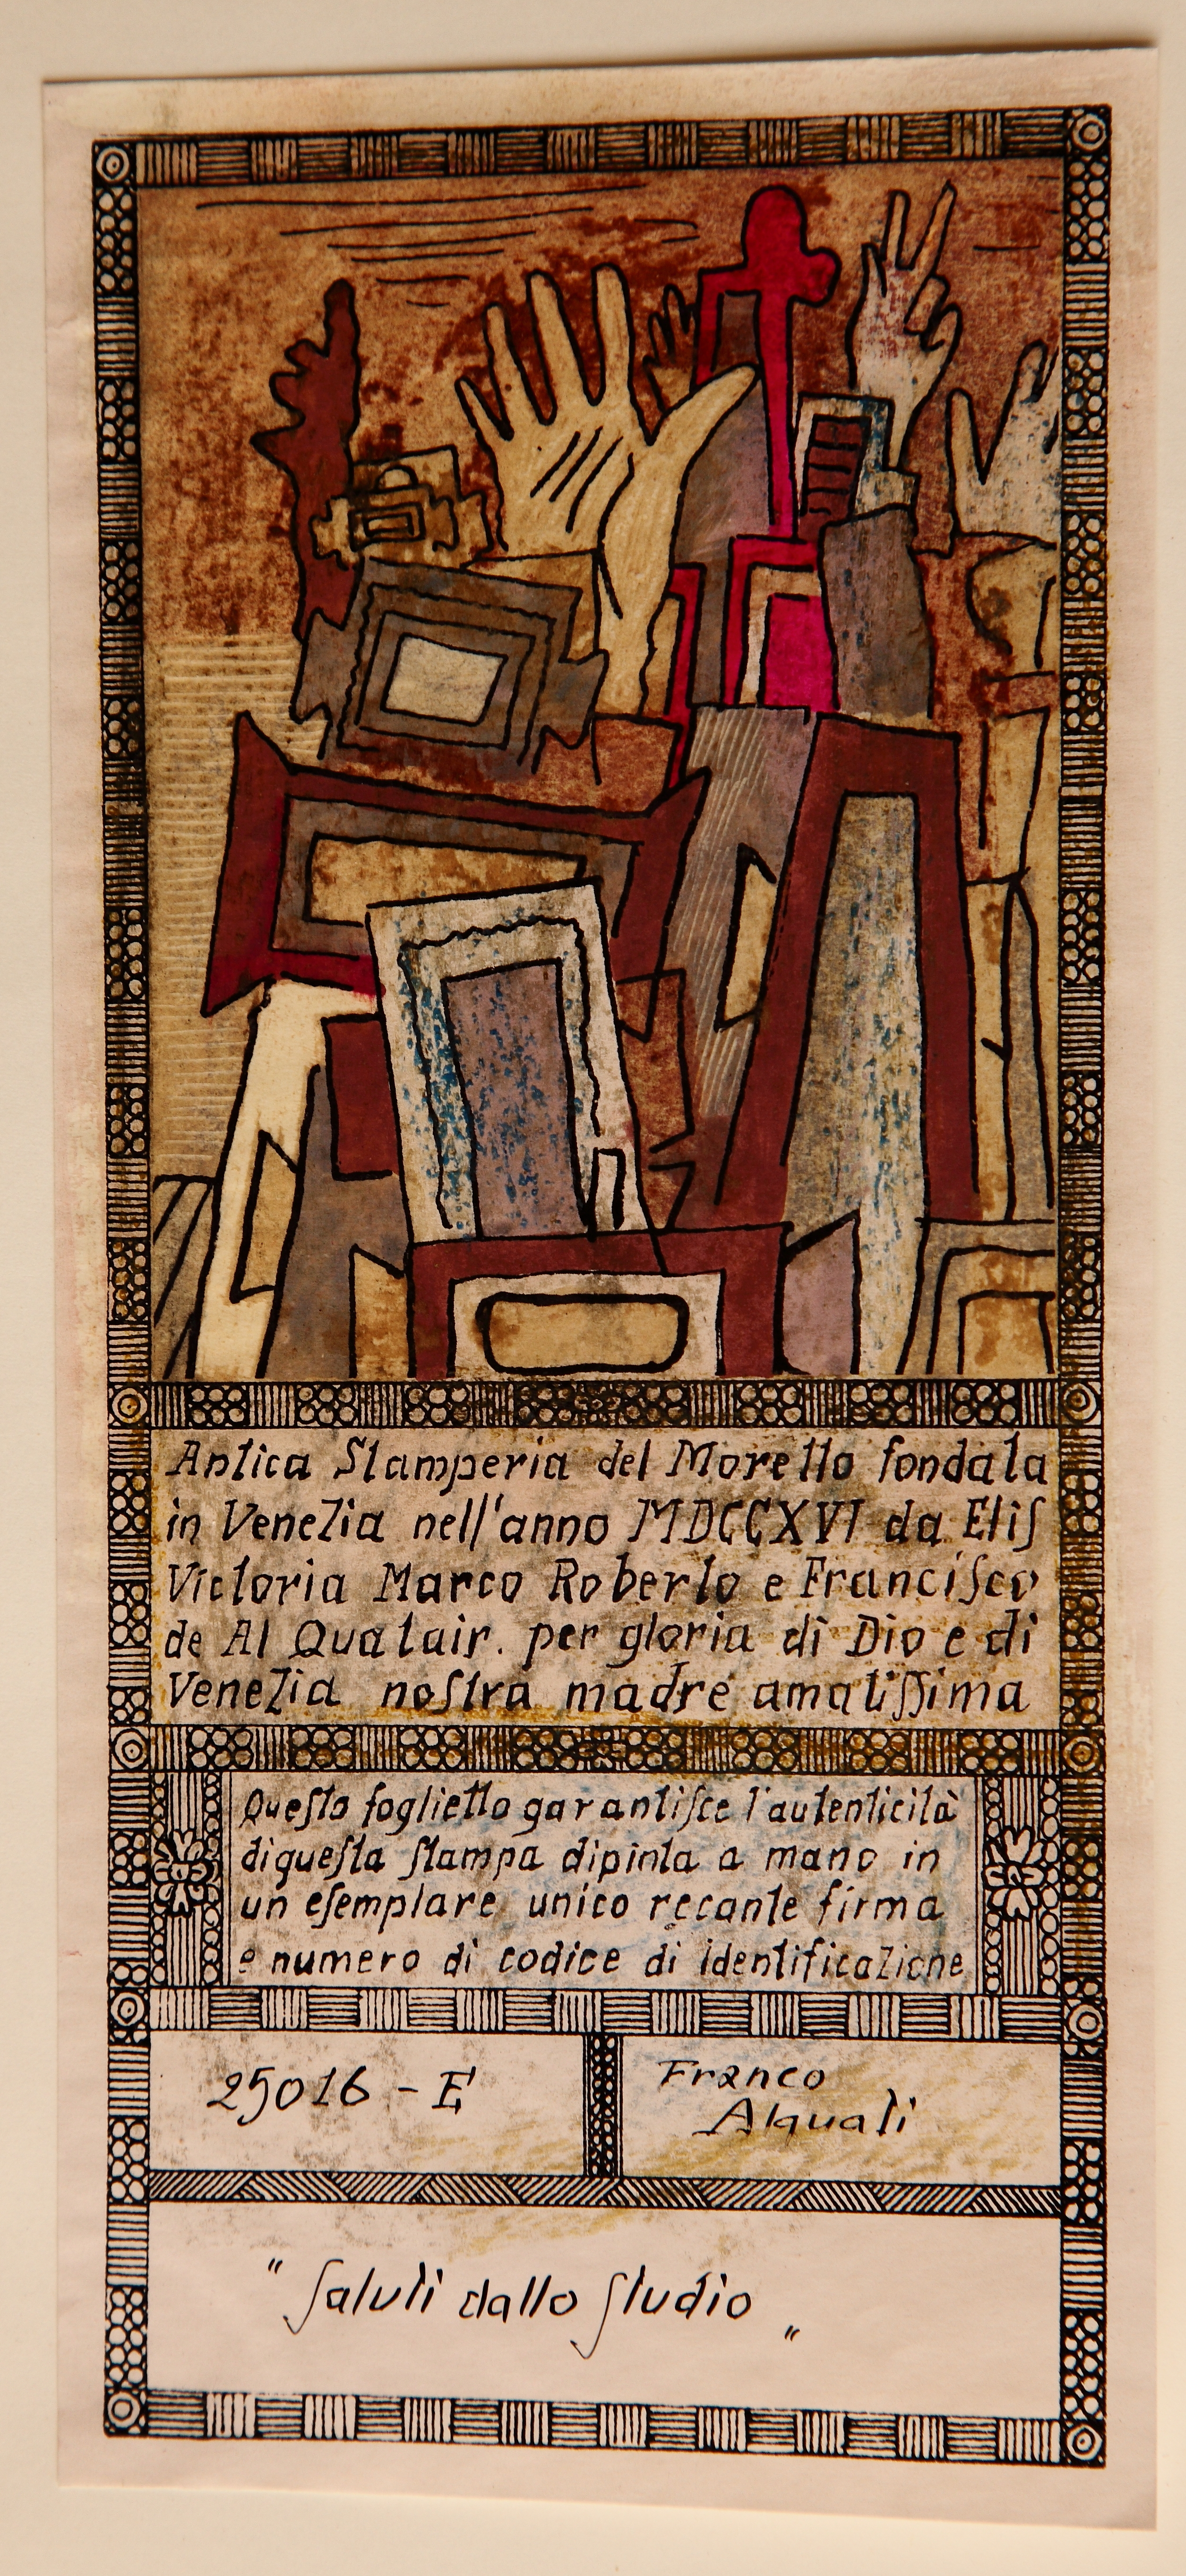 Antica Stamperia del Moretto fondata
in Venezia nell'anno MDCCXVI da Eliſ
Victoria Marco Roberto e Franciſco
de Al Quatair. per gloria di Dio e di
Venezia noſtra madre amatiſſima
Queſto foglietto garantiſce l'autenticità
di queſta ſtampa dipinta a mano in
un eſemplare unico recante firma
e numero di codice di identificazione
25016 - E
Franco
Alquati
" ſaluti dallo ſtudio "